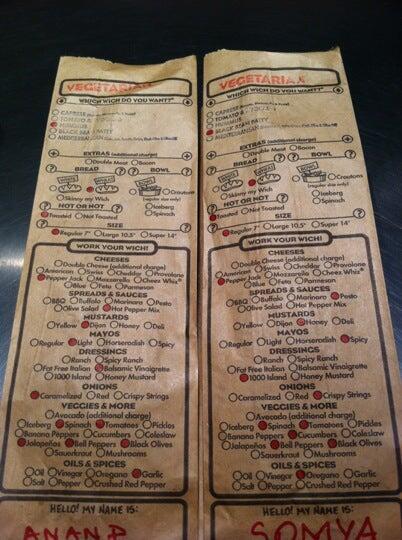 VEGETARIAN
WHICH WICH DO YOU WANT?
CAPRESE
TOMATO &
BLACK BEAN PATTY
EXTRAS (additional charge)
Double Meat Bacon
BREAD BOWL
Skinny my Wich
Croutons
Iceberg
Spinach
HOT OR NOT
Toasted Not Toasted
SIZE
Regular 7" Large 10.5" Super 14"
WORK YOUR WICH!
CHEESES
Double Cheese (additional charge)
American Swiss Cheddar Provolone
Pepper Jack Mozzarella Cheez Whiz®
Blue Feta Parmesan
SPREADS & SAUCES
BBQ Buffalo Marinara Pesto
Olive Salad Hot Pepper Mix
MUSTARDS
Yellow Dijon Honey Deli
MAYOS
Regular Light Horseradish Spicy
DRESSINGS
Ranch Spicy Ranch
Fat Free Italian Balsamic Vinaigrette
1000 Island Honey Mustard
ONIONS
Caramelized Red Crispy Strings
VEGGIES & MORE
Avocado (additional charge)
Iceberg Spinach Tomatoes Pickles
Banana Peppers Cucumbers Coleslaw
Jalapeños Bell Peppers Black Olives
Sauerkraut Mushrooms
OILS & SPICES
Oil Vinegar Oregano Garlic
Salt Pepper Crushed Red Pepper
HELLO! MY NAME IS:
ANAND
VEGETARIAN
WHICH WICH DO YOU WANT?
CAPRESE
TOMATO &
HUMMUS
BLACK BEAN PATTY
MEDITERRANEAN
EXTRAS (additional charge)
Double Meat Bacon
BREAD BOWL
Skinny my Wich
Croutons
Iceberg
Spinach
HOT OR NOT
Toasted Not Toasted
SIZE
Regular 7" Large 10.5" Super 14"
WORK YOUR WICH!
CHEESES
Double Cheese (additional charge)
American Swiss Cheddar Provolone
Pepper Jack Mozzarella Cheez Whiz®
Blue Feta Parmesan
SPREADS & SAUCES
BBQ Buffalo Marinara Pesto
Olive Salad Hot Pepper Mix
MUSTARDS
Yellow Dijon Honey Deli
MAYOS
Regular Light Horseradish Spicy
DRESSINGS
Ranch Spicy Ranch
Fat Free Italian Balsamic Vinaigrette
1000 Island Honey Mustard
ONIONS
Caramelized Red Crispy Strings
VEGGIES & MORE
Avocado (additional charge)
Iceberg Spinach Tomatoes Pickles
Banana Peppers Cucumbers Coleslaw
Jalapeños Bell Peppers Black Olives
Sauerkraut Mushrooms
OILS & SPICES
Oil Vinegar Oregano Garlic
Salt Pepper Crushed Red Pepper
HELLO! MY NAME IS:
SOMYA